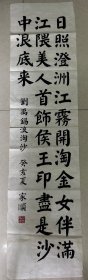 日照澄洲江霧開淘金女伴滿
江隈美人首飾侯王印盡是沙
中浪底來 劉禹錫浪淘沙 癸亥夏 家